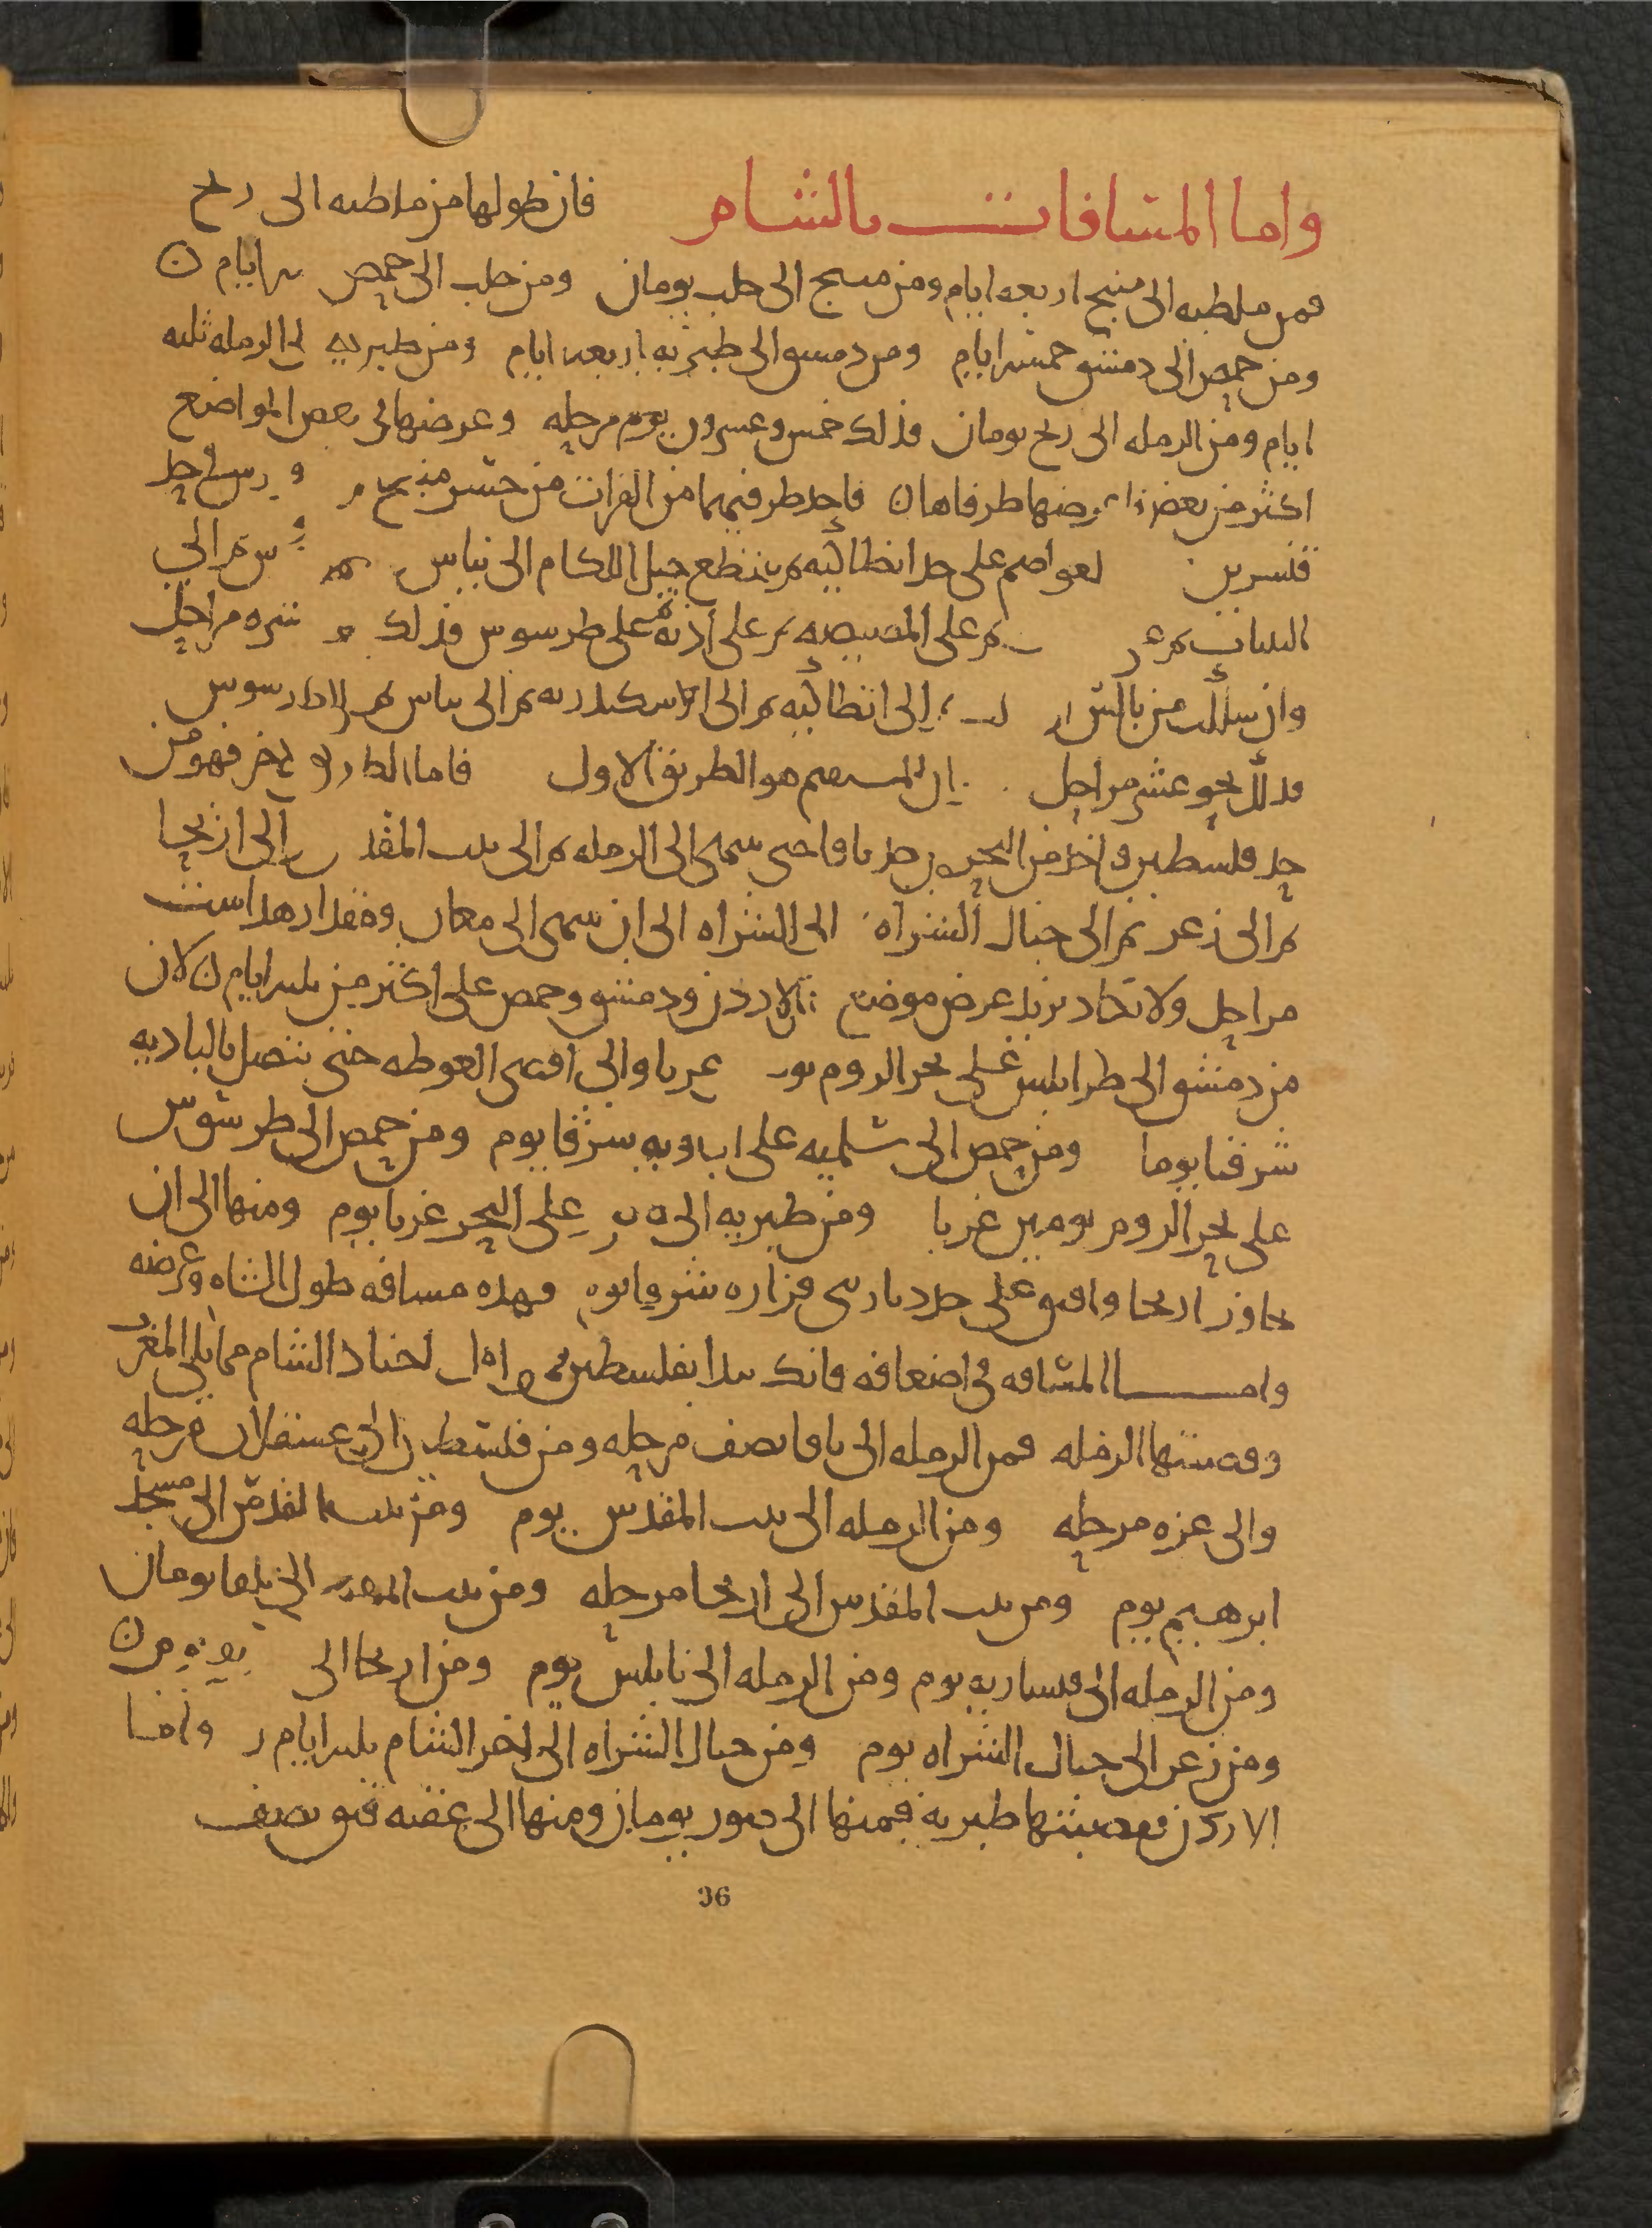 واما المسافات بالشام فان طولها من ملطيه الى رفح
فمن ملطيه الى منبج اربعه ايام ومن منبج الى حلب يومان ومن حلب الى حمص ايام
ومن حمص الى دمشق خمسه ايام ومن دمشق الى طبريه اربعه ايام ومن طبريه الى الرمله ثلثه
ايام ومن الرمله الى رفح يومان فذلك خمس وعشرون يوم مرحله وعرضها في بعض المواضع
اكثر من بعض طرفاها فاحد طرفيهما من الفرات من جسر منبج
قنسرين لعواصم على حد انطاليه ثم ينقطع جبل اللكام الى بياس ثم الى
ثم على المصيصه ثم على اذنه ثم على طرسوس فذلك عشره مراحل
وان سلكت من بالس الى انطاليه ثم الى اسكندريه ثم الى بياس ثم الى طرسوس
فذلك نحو عشر مراحل المستقيم هو الطريق الاول فاما الطرف الاخر فهو من
حد فلسطين واخذ من البحر من حد يافا حتى ينتهى الى الرمله ثم الى بيت المقدس الى اريحا
ثم الى زغر ثم الى جبال الشراه الى الشراه الى ان ينتهى الى معان ومقدار هذا ست
مراحل ولا تكاد تزيد عرض موضع الاردن ودمشق وحمص على اكثر من ثلثه ايام لان
من دمشق الى طرابلس على بحر الروم غربا والى اقصى الغوطه حتى يتصل بالباديه
شرقا يوما ومن حمص الى سلميه على الباديه شرقا يوم ومن حمص الى طرسوس
على بحر الروم يومين غربا ومن طبريه الى صور على البحر غربا يوم ومنها الى ان
تجاوز اريحا وافيق على حد ديار بنى فزاره شرقا يوم فهذه مسافه طول الشام وعرضه
واما المسافه في اضعافه فانك تبدا بفلسطين اول اجناد الشام مما يلي المغرب
وقصبتها الرمله فمن الرمله الى يافا نصف مرحله ومن فلسطين الى عسقلان مرحله
والى غزه مرحله ومن الرمله الى بيت المقدس يوم ومن بيت المقدس الى مسجد
ابرهيم يوم ومن بيت المقدس الى اريحا مرحله ومن بيت المقدس الى بلقا يومان
ومن الرمله الى قيساريه يوم ومن الرمله الى نابلس يوم ومن اريحا الى
ومن زغر الى جبال الشراه يوم ومن جبال الشراه الى اخر الشام ثلثه ايام واما
الاردن فقصبتها طبريه فمنها الى صور يومان ومنها الى عقبه فيق نصف
36